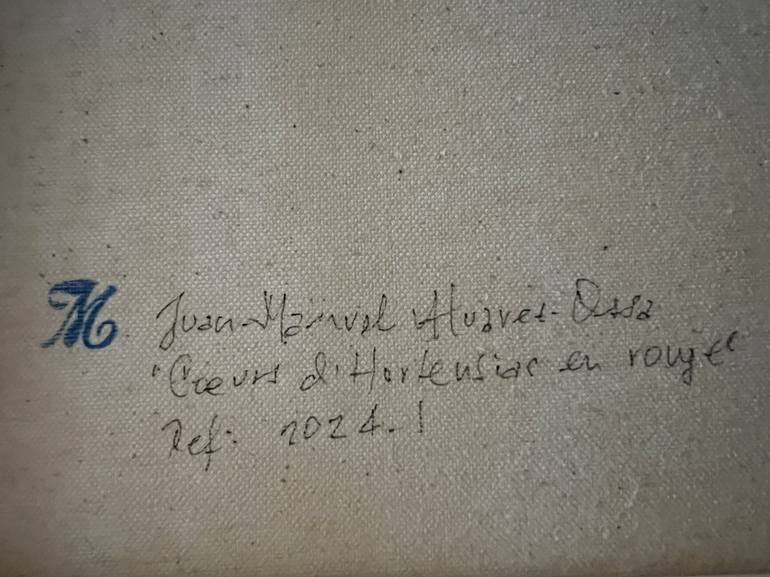 M Juan-Manuel Alvarez-Ossa
"Cœurs d'Hortensias en rouge"
Ref: 2024.1